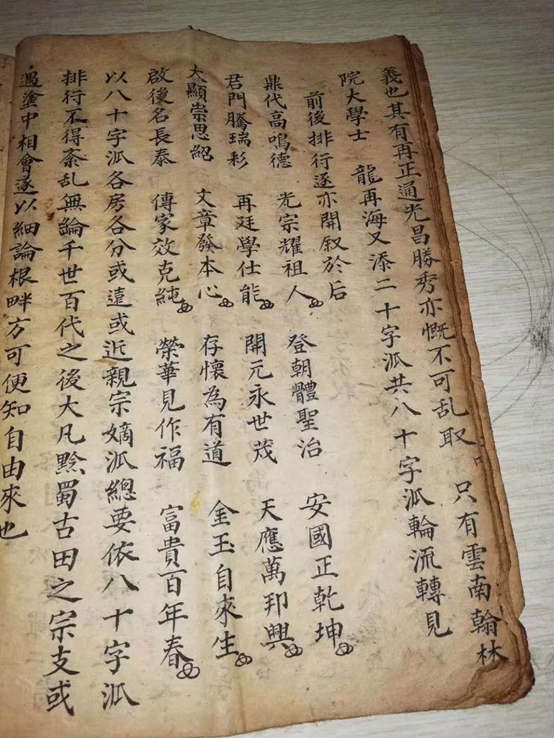 義也其有再正通光昌勝秀亦慨不可乱取 只有雲南翰林
院大學士 龍再海又添二十字派共八十字派輪流轉見
前後排行逐亦開叙於后
鼎代高鳴德 光宗耀祖人 登朝體聖治 安國正乾坤
君門騰瑞彩 再廷學仕能 開元永世茂 天應萬邦興
大顯崇思紹 文章發本心 存懷為有道 金玉自來生
啟後名長泰 傳家效克純 榮華見作福 富貴百年春
以八十字派各房各分或遠或近親宗嫡派總要依八十字派
排行不得紊乱無論千世百代之後大凡黔蜀古田之宗支或
遇塗中相會遂以細論根畔方可便知自由來也